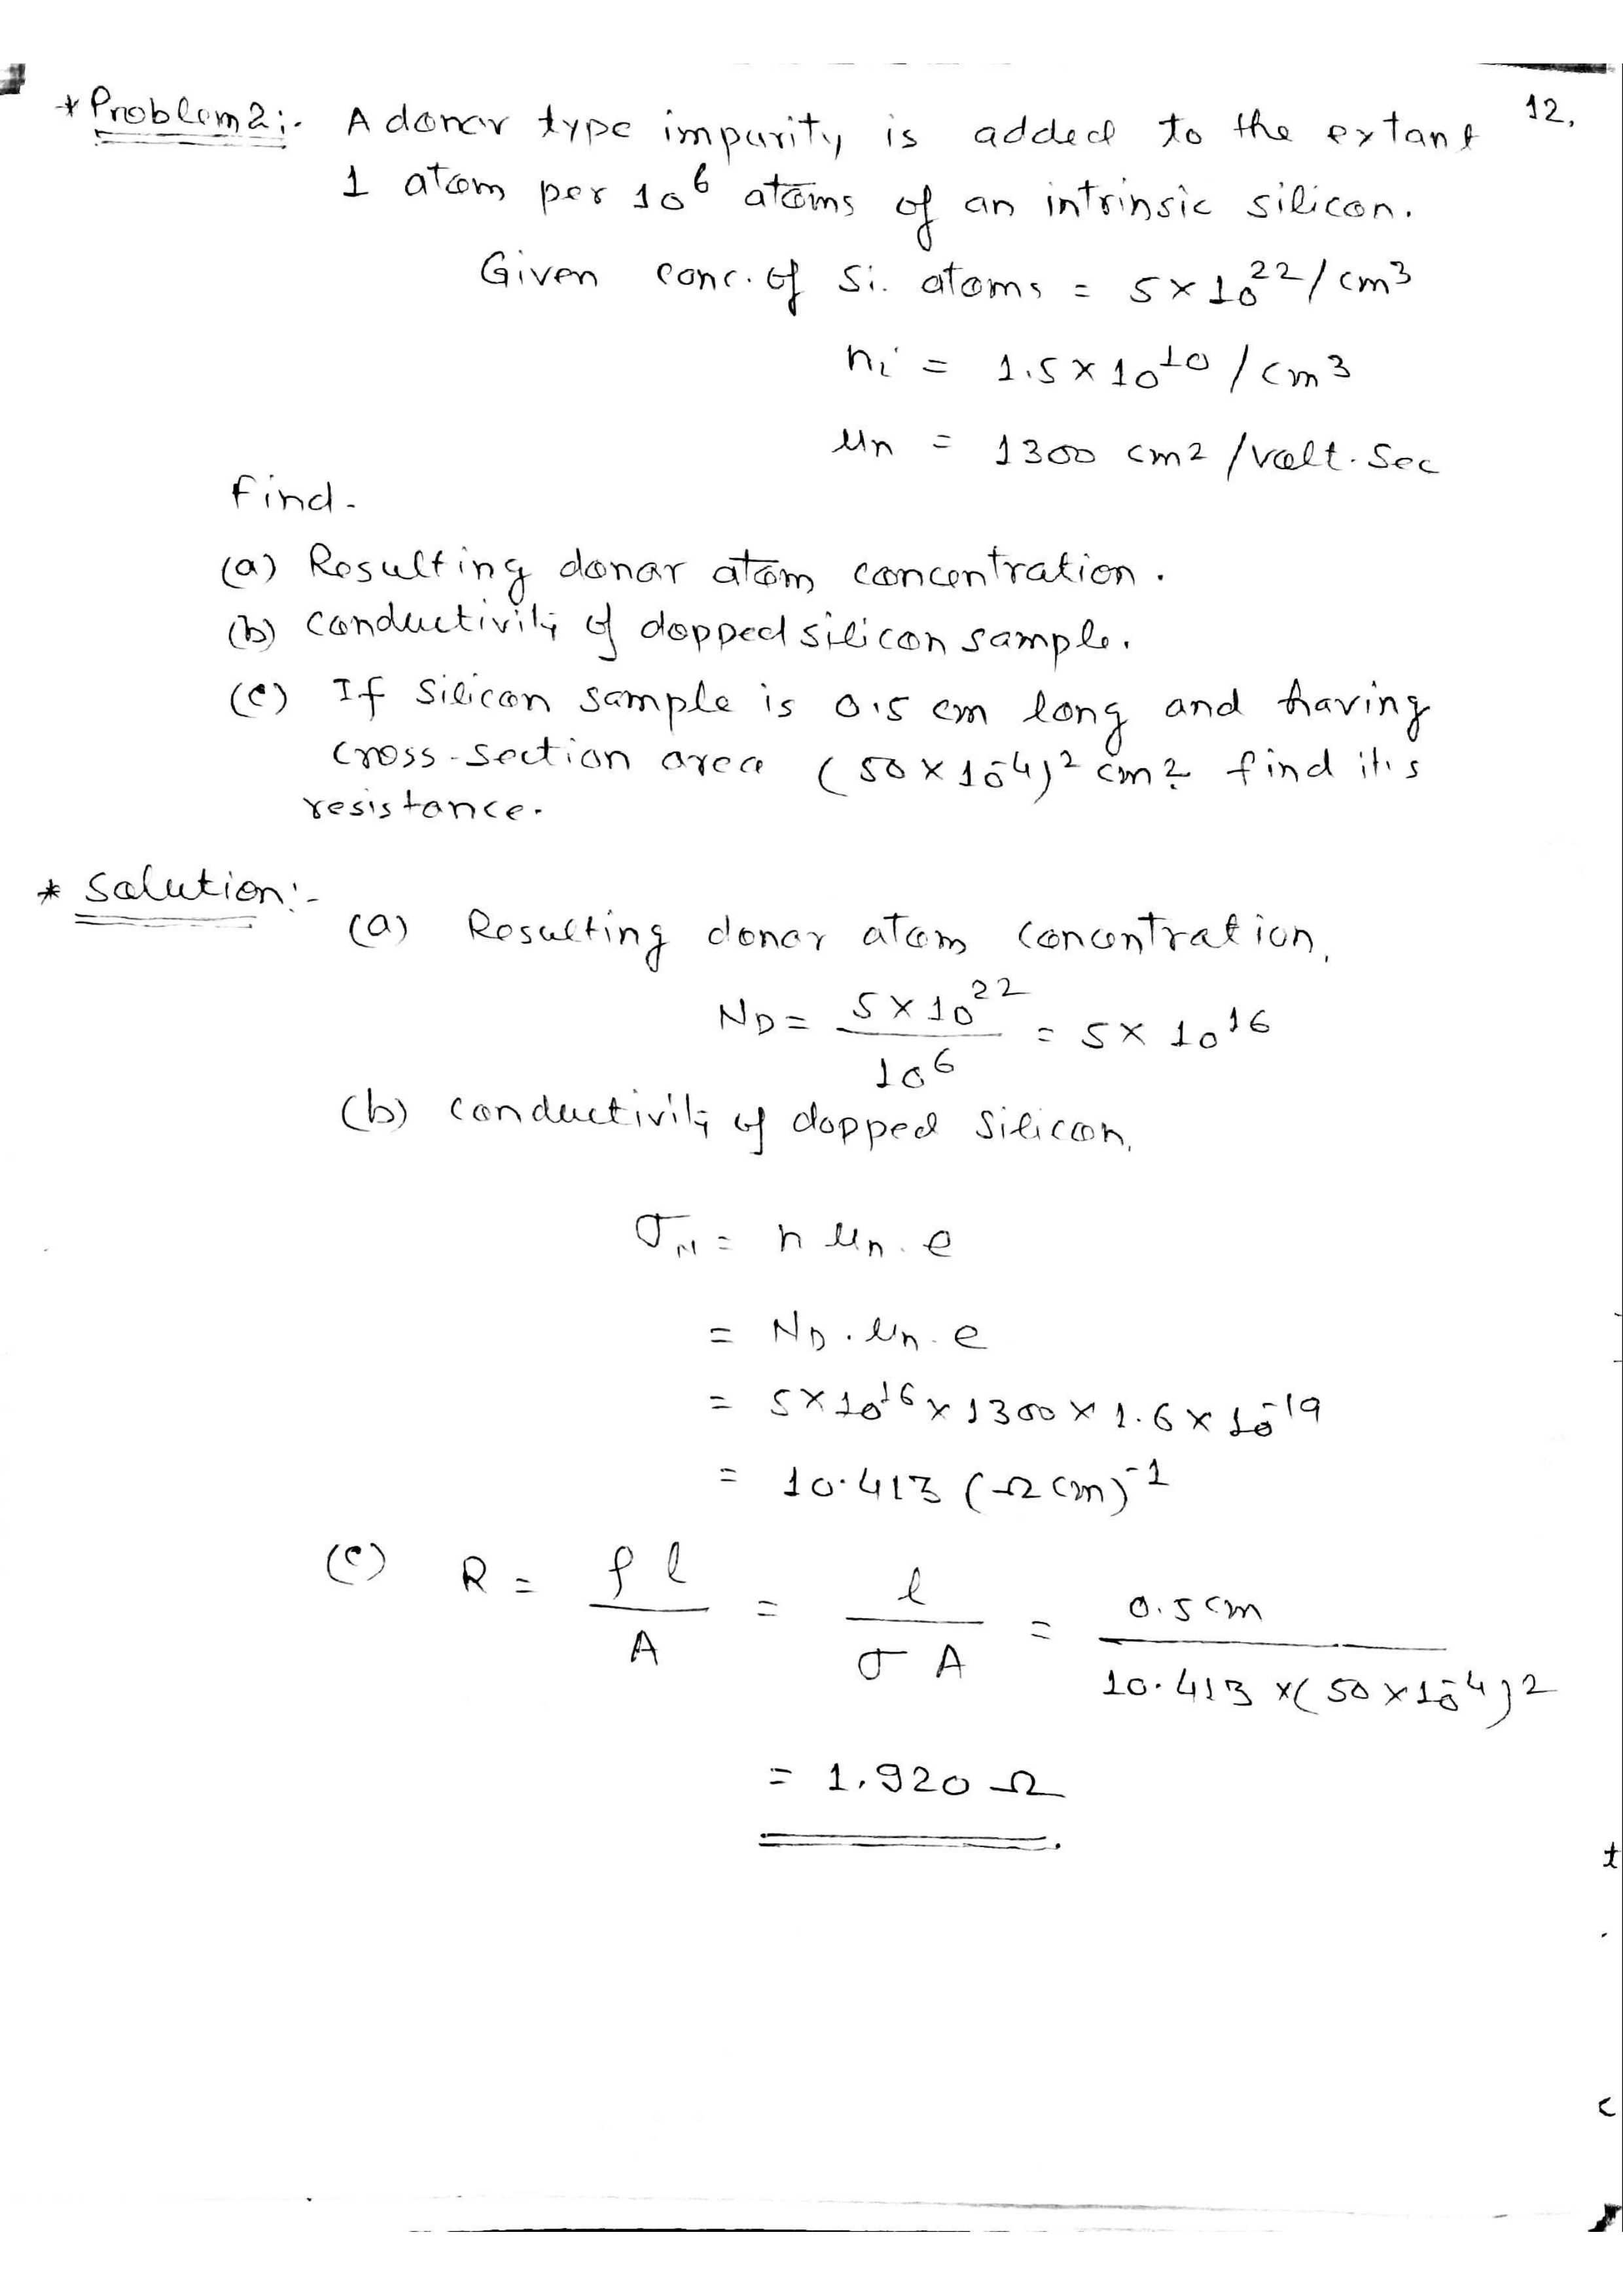 12.
* Problem 2:- A donor type impurity is added to the extant
1 atom per 10^6 atoms of an intrinsic silicon.
Given conc. of Si. atoms = 5 × 10^22 / cm^3
ni = 1.5 × 10^10 / cm^3
μn = 1300 cm2 / volt. Sec
Find -
(a) Resulting donar atom concentration.
(b) conductivity of dopped silicon sample.
(c) If Silicon sample is 0.5 cm long and having
cross-section area (50 × 10^-4)^2 cm2 find it's
resistance.
* Solution:-
(a) Resulting donar atom concentration,
ND = 5 × 10^22 / 10^6 = 5 × 10^16
(b) conductivity of dopped silicon,
σN = n μn. e
= ND. μn. e
= 5 × 10^16 × 1300 × 1.6 × 10^-19
= 10.413 (Ω cm)^-1
(c) R = ρ l / A = l / σ A = 0.5 cm / 10.413 × (50 × 10^-4)2
= 1.920 Ω
t
c